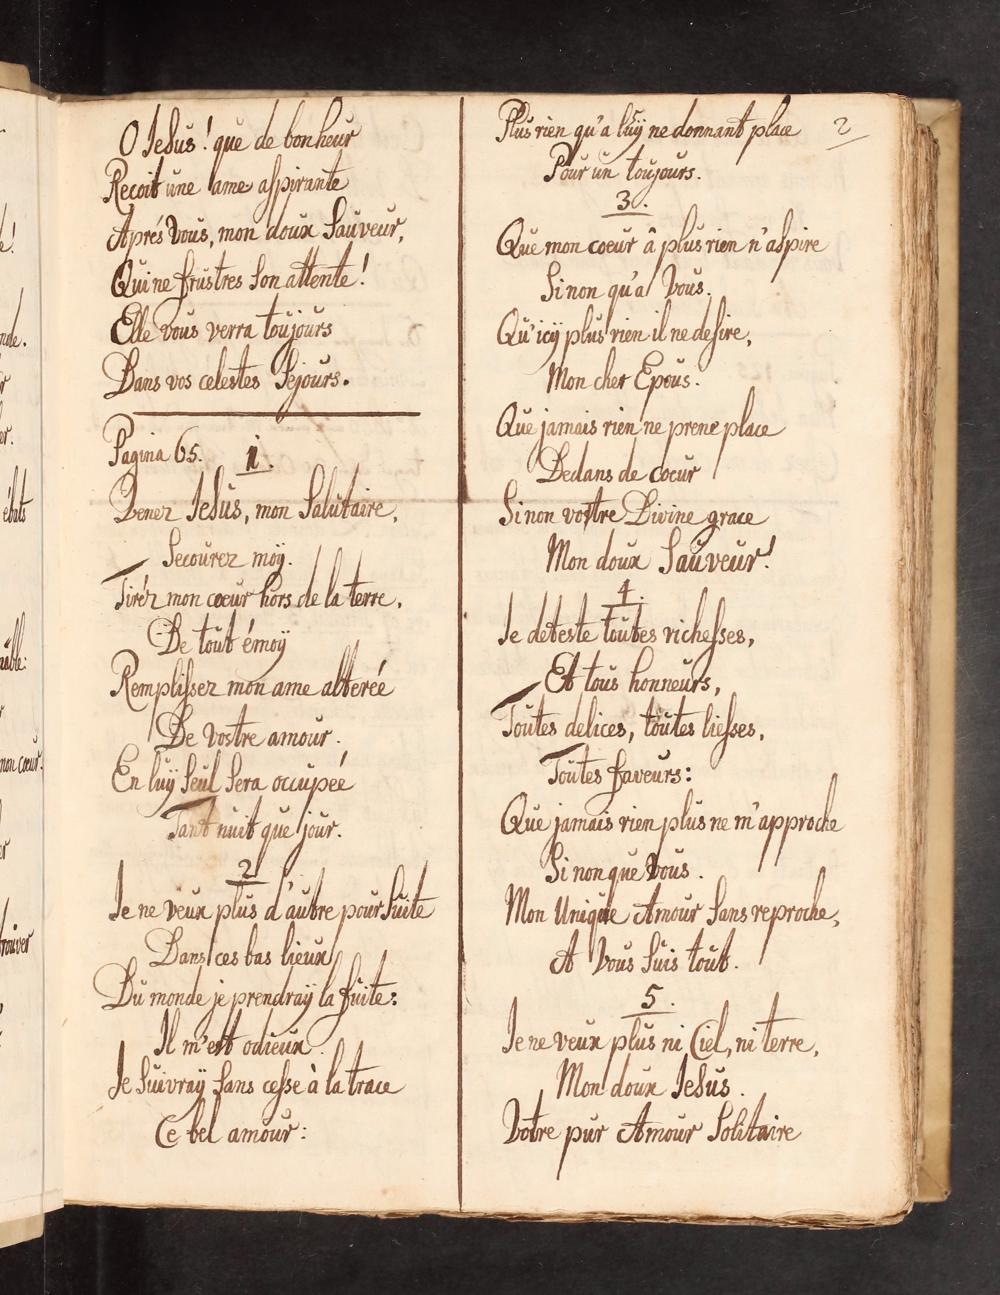 O Jesus! que de bonheur
Reçoit une ame aspirante
Aprés Vous, mon doux Sauveur,
Qui ne frustres son attente!
Elle vous verra toujours
Dans vos celestes Sejours.
Pagina 65.
1.
Venez Jesus, mon Salutaire,
Secourez moÿ.
Tiréz mon cœur hors de la terre,
De tout émoÿ
Remplissez mon ame altereé
De Vostre amour.
En luÿ seul sera occupeé
Tant nuit que jour.
2
Je ne veux plus d'autre poursuite
Dans ces bas lieux
Du monde je prendraÿ la fuite:
Il m'est odieux.
Je suivraÿ sans cesse à la trace
Ce bel amour:
2
Plus rien qu'a luÿ ne donnant place
Pour un toujours.
3.
Que mon coeur â plus rien n'aspire
Sinon qu'a Vous.
Qu'icÿ plus rien il ne desire,
Mon cher Epous.
Que jamais rien ne prene place
Dedans de coeur
Sinon vostre Divine grace
Mon doux Sauveur!
4.
Je deteste toutes richesses,
Et tous honneurs,
Toutes delices, toutes liesses,
Toutes faveurs:
Que jamais rien plus ne m'approche
Si non que Vous.
Mon Unique Amour sans reproche,
A Vous suis tout.
5.
Je ne veux plus ni Ciel, ni terre,
Mon doux Jesus.
Votre pur Amour Solitaire